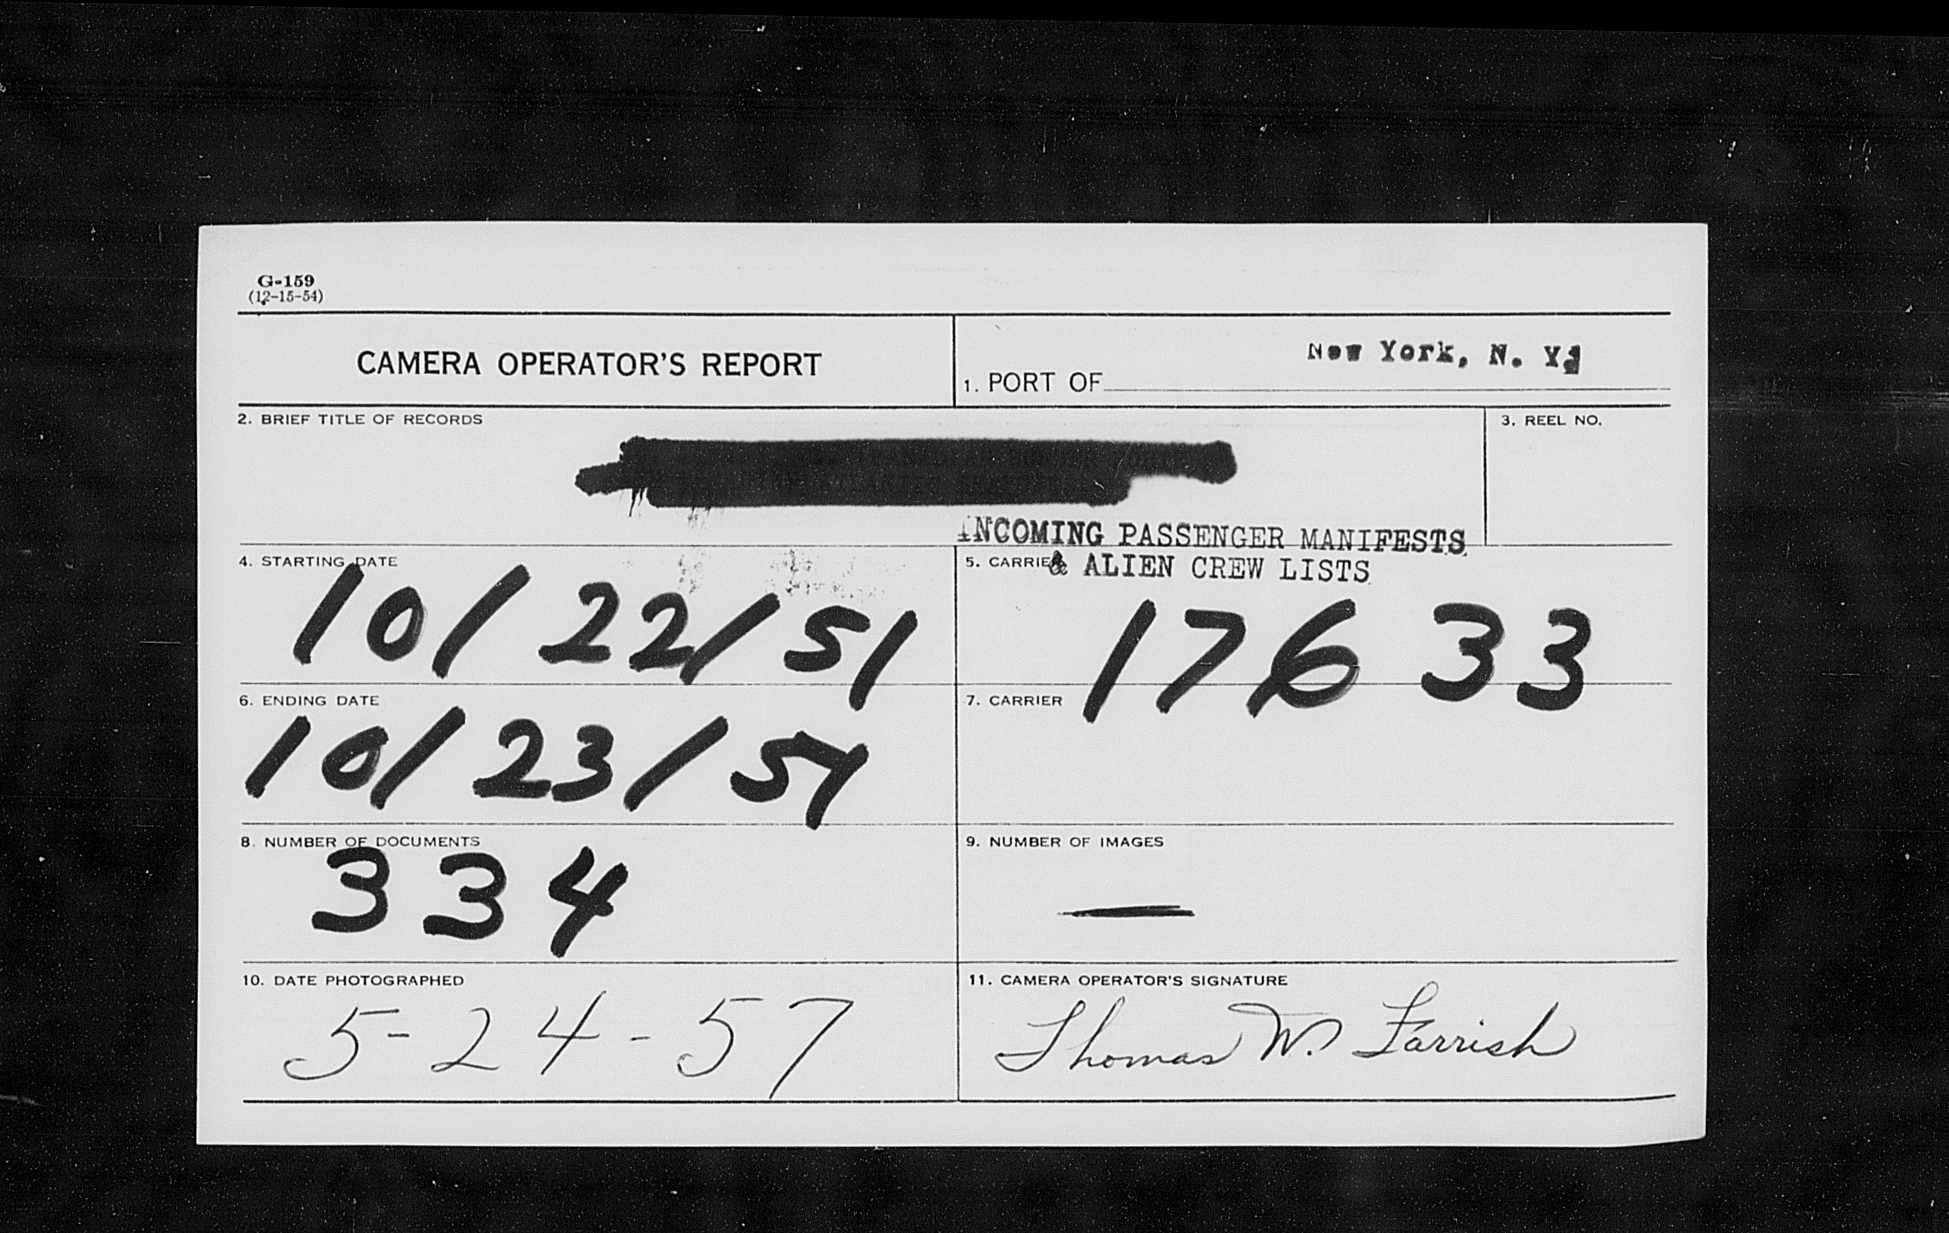 G-159
(12-15-54)
CAMERA OPERATOR'S REPORT
1. PORT OF New York, N. Y.
2. BRIEF TITLE OF RECORDS
3. REEL NO.
INCOMING PASSENGER MANIFESTS
& ALIEN CREW LISTS
4. STARTING DATE
10/22/51
5. CARRIER
17633
6. ENDING DATE
10/23/51
7. CARRIER
8. NUMBER OF DOCUMENTS
334
9. NUMBER OF IMAGES
—
10. DATE PHOTOGRAPHED
5-24-57
11. CAMERA OPERATOR'S SIGNATURE
Thomas W. Farrish